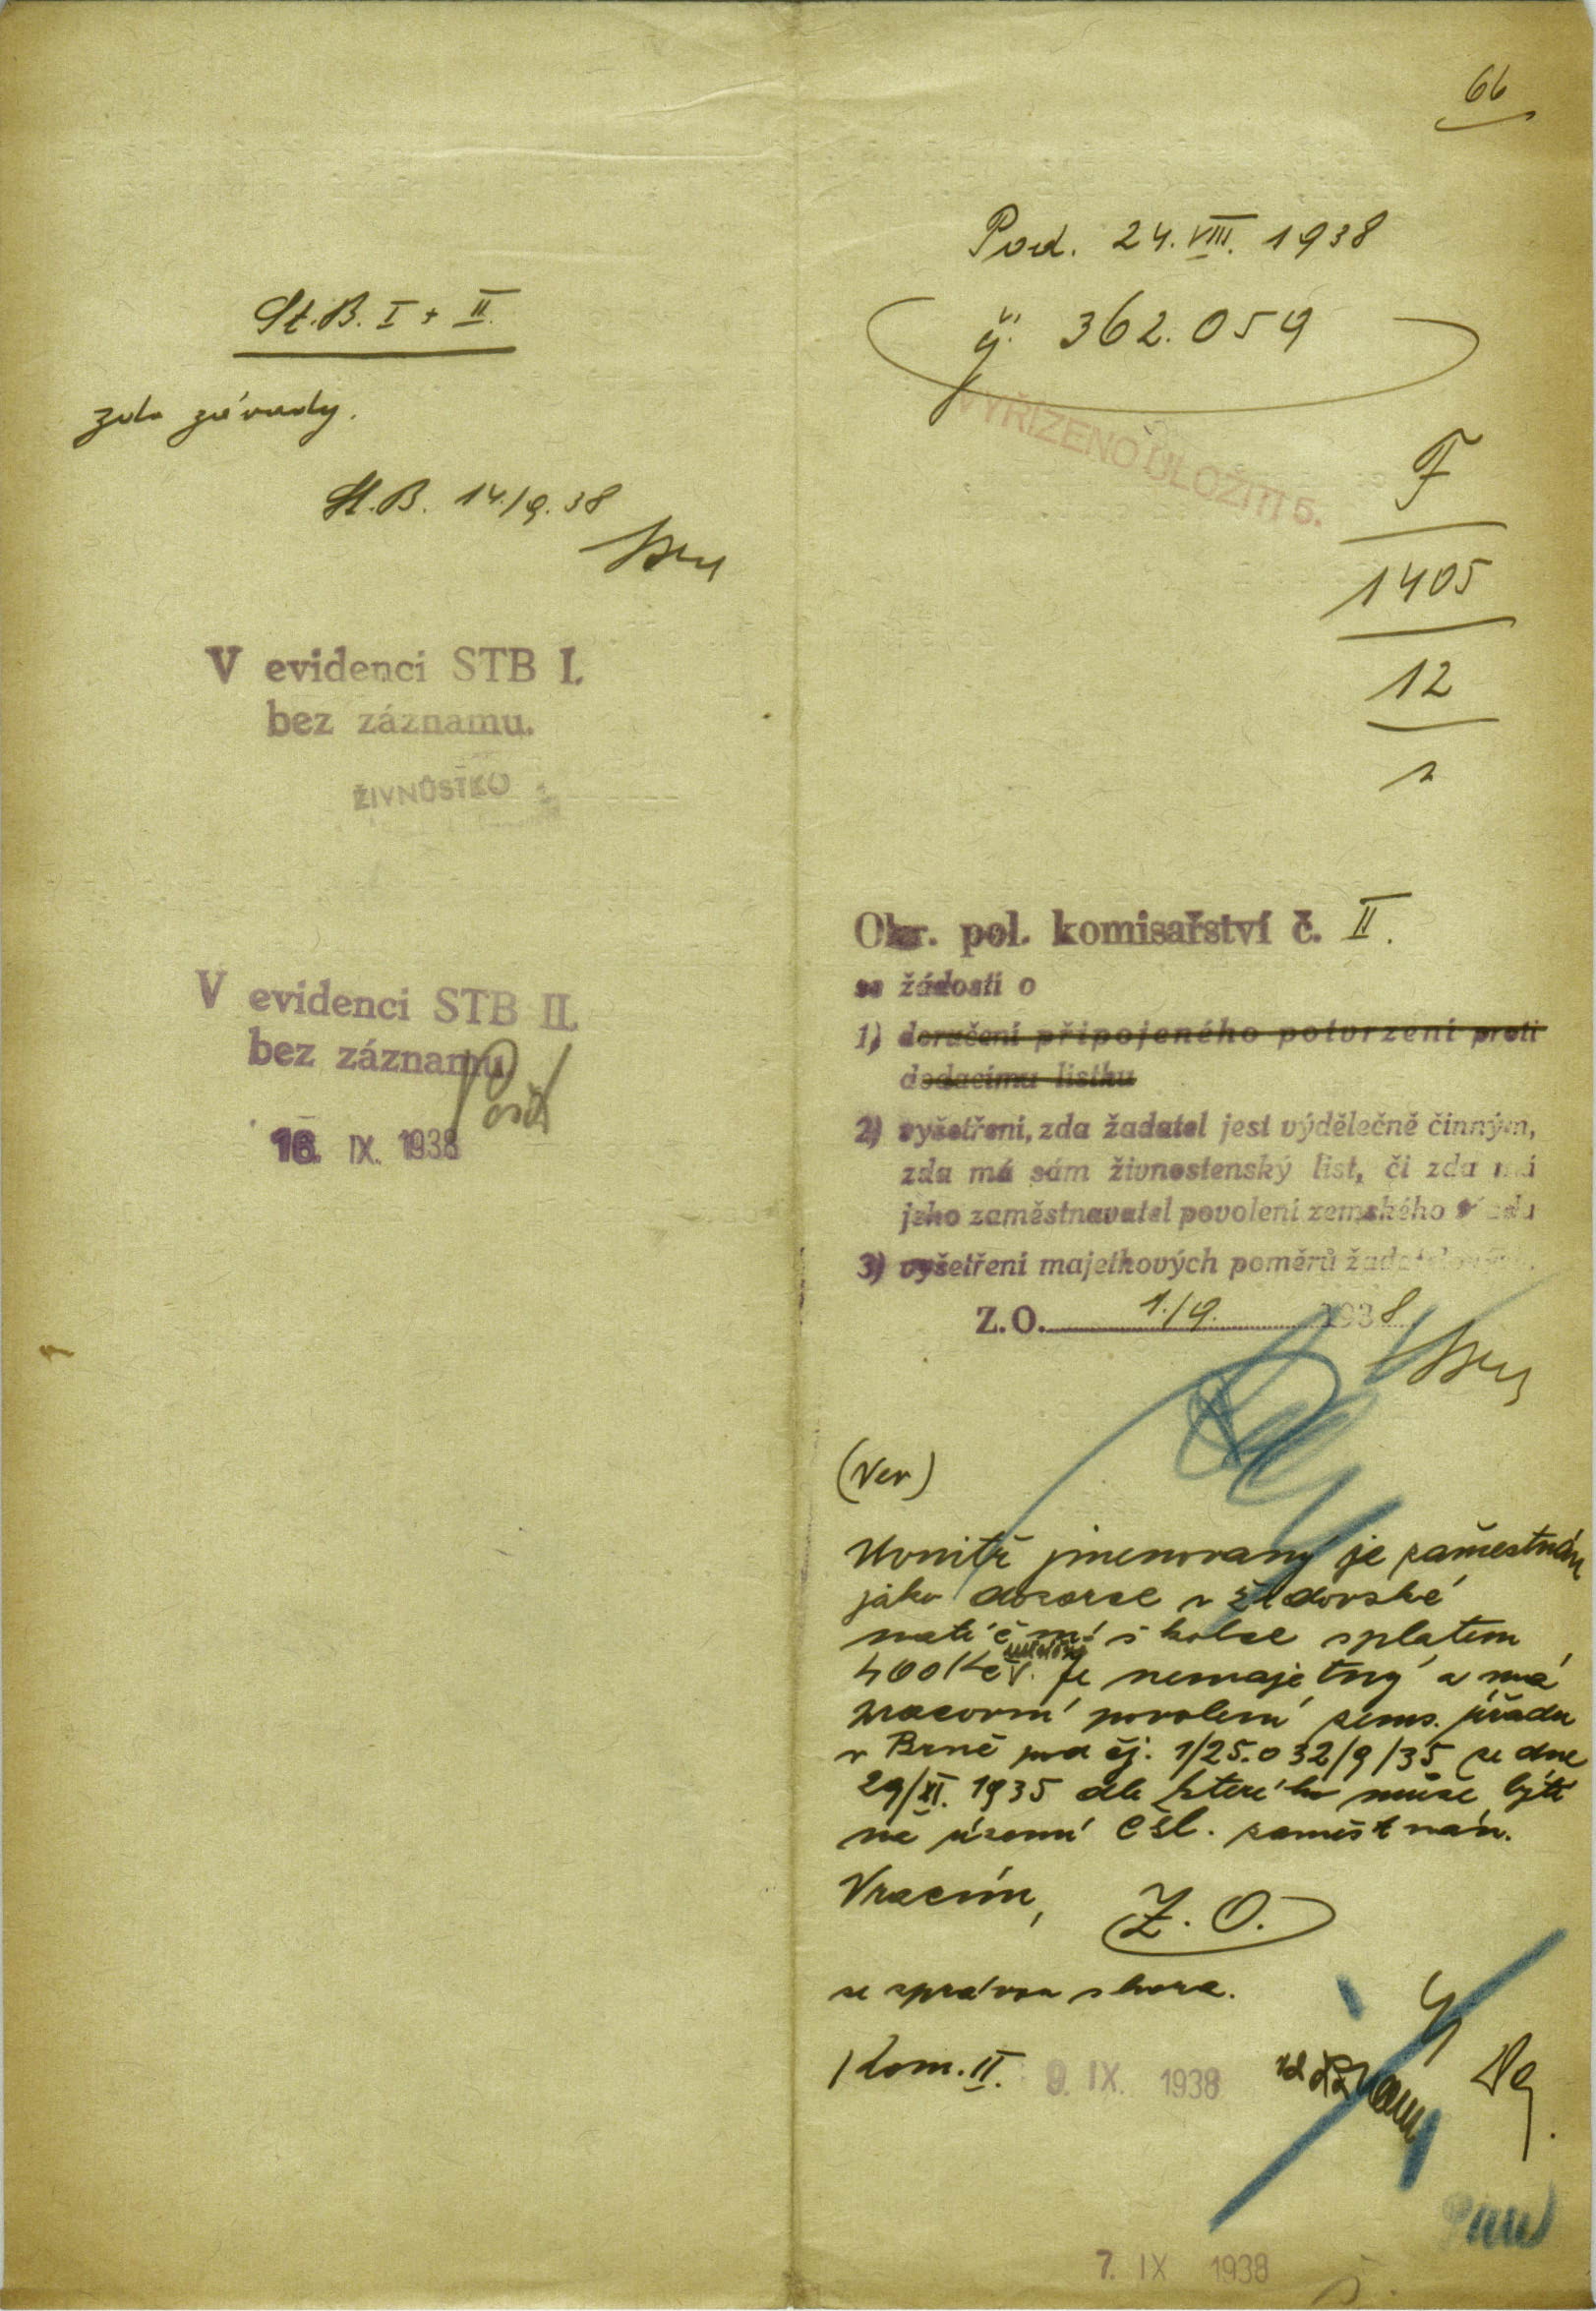 St.B. I + II.
zda závady.
St.B. 14./9. 38
V evidenci STB I.
bez záznamu.
ŽIVNŮSTKO
V evidenci STB II.
bez záznamu.
16. IX. 1938
66
Pod. 24. VIII. 1938
čj. 362.059
VYŘÍZENO ULOŽITI 5.
F
1405
12
Okr. pol. komisařství č. II.
se žádosti o
1) doručení připojeného potvrzení proti
dodacímu lístku
2) vyšetření, zda žadatel jest výdělečně činným,
zda má sám živnostenský list, či zda má
jeho zaměstnavatel povolení zemského
3) vyšetření majetkových poměrů
Z.O. 1./9. 1938
(Ver)
Uvnitř jmenovaný je zaměstnán
jako dozorce v židovské
matiční školce s platem
400 Kč. Je nemajetný a má
pracovní povolení zems. úřadu
v Brně pod čj. 1/25.032/9/35 ze dne
29/XI. 1935 dle kterého může býti
na území ČSl. zaměstnán.
Vracím,
Z. O.
se zprávou shora.
Kom. II. 9. IX. 1938
7. IX 1938